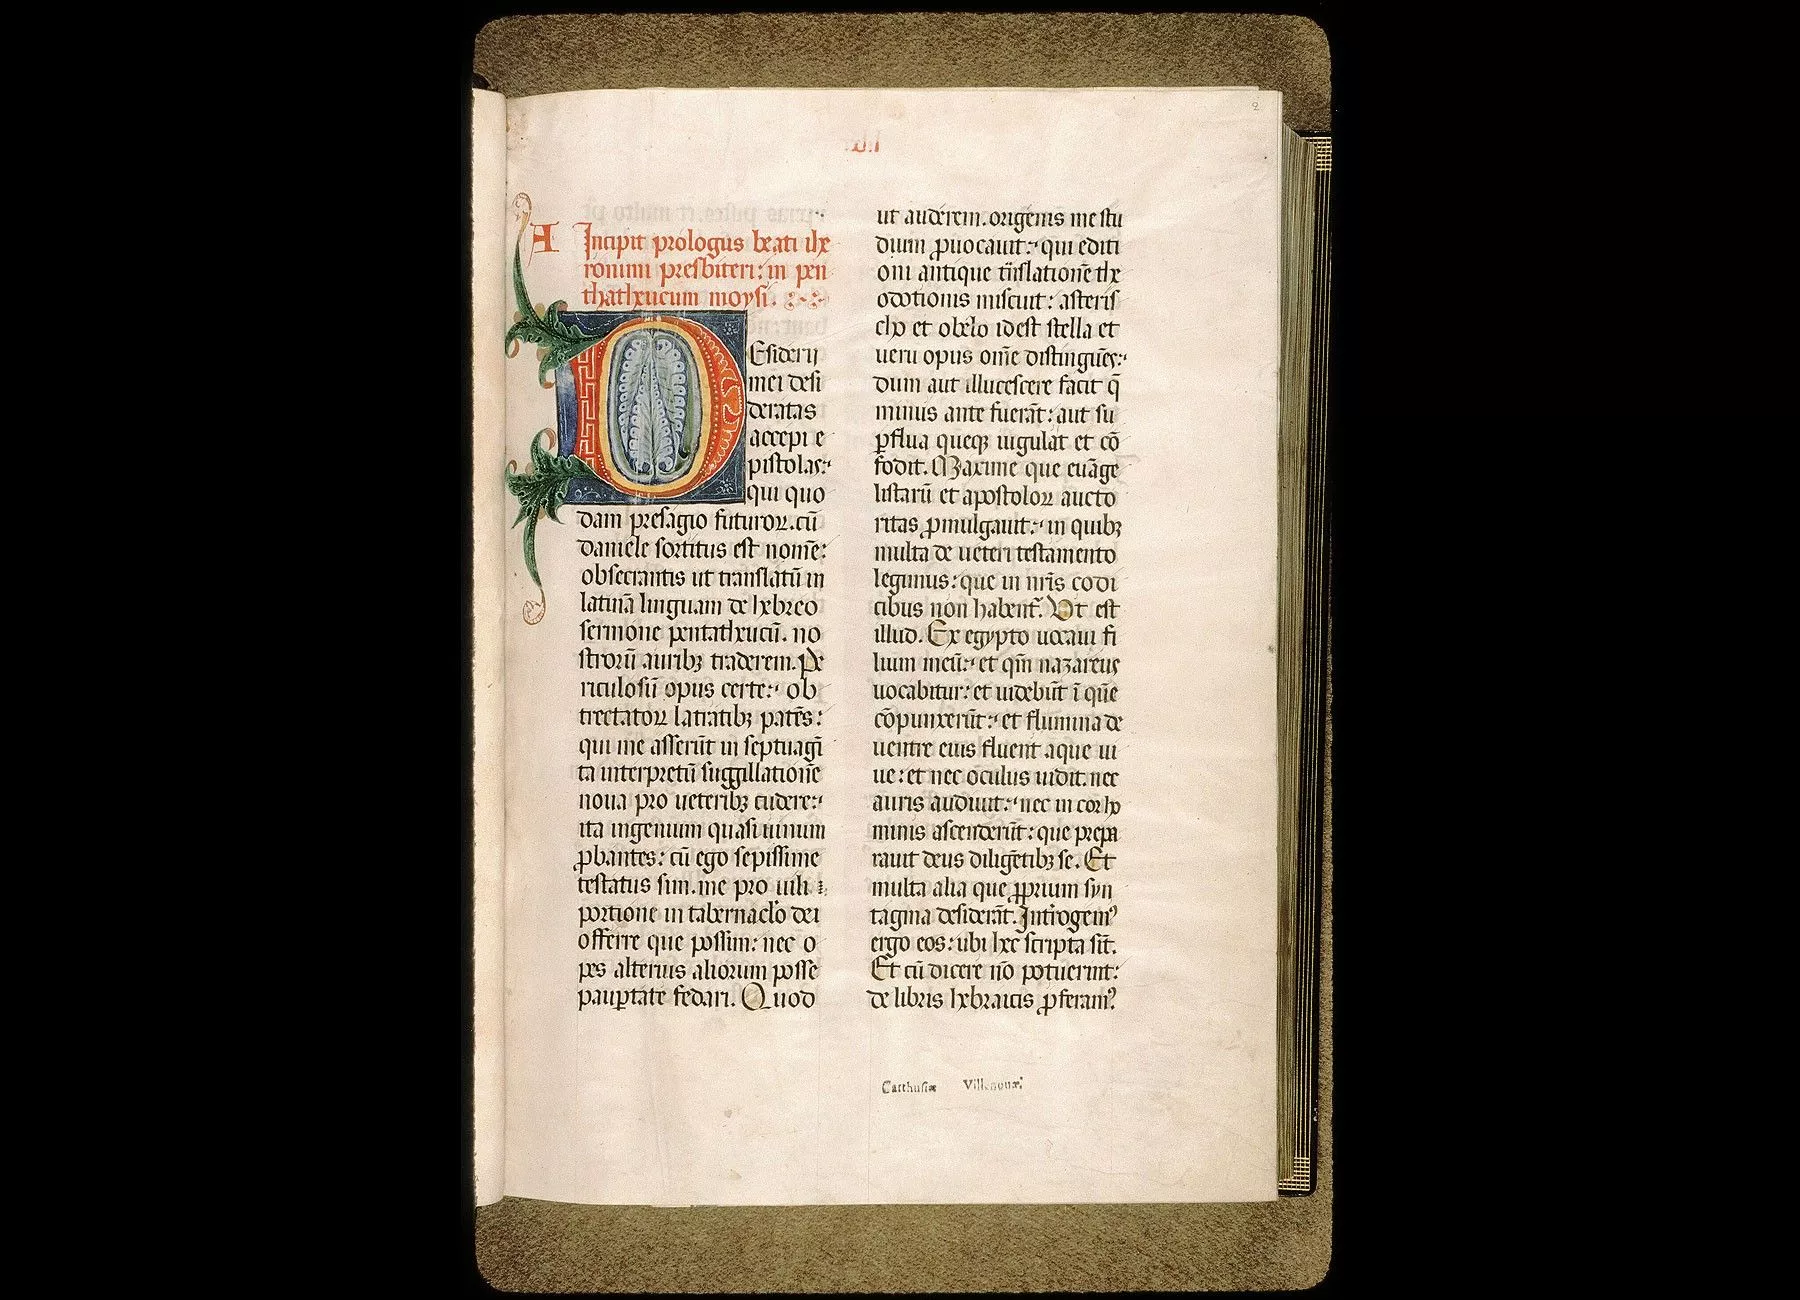 2
A
Incipit prologus beati ihe
ronimi presbiteri: in pen
thatheucum moysi.
DEsiderij
mei desi
deratas
accepi e
pistolas:
qui quo
dam presagio futuroꝝ. cū
daniele sortitus est nomē:
obsecrantis ut translatū in
latinā linguam de hebreo
sermone pentatheucū. no
strorū auribꝫ traderem. Pe
riculosū opus certe: ob
trectatoꝝ latratibꝫ patēs:
qui me asserūt in septuagī
ta interpretū suggillationē
noua pro ueteribꝫ cudere:
ita ingenium quasi uinum
ꝓbantes: cū ego sepissime
testatus sim. me pro uili
portione in tabernaclo dei
offerre que possim: nec o
pes alterius aliorum posse
pauꝑtate fedari. Quod
ut auderem. origenis me stu
dium ꝓuocauit: qui editi
oni antique trnslationē the
odotionis miscuit: asteris
cho et obelo idest stella et
ueru opus omē distinguēs:
dum aut illucescere facit q̄
minus ante fuerāt: aut su
ꝑflua queqꝫ iugulat et cō
fodit. Maxime que euāge
listarū et apostoloꝝ aucto
ritas ꝓmulgauit: in quibꝫ
multa de ueteri testamento
legimus: que in nr̄is codi
cibus non habent᷒. Vt est
illud. Ex egypto uocaui fi
lium meū: et qm̄ nazareus
uocabitur: et uidebūt ī quē
cōpunxerūt: et flumina de
uentre eius fluent aque ui
ue: et nec oculus uidit. nec
auris audiuit: nec in cor ho
minis ascenderūt: que prepa
rauit deus diligētibꝫ se. Et
multa alia que ꝓprium syn
tagma desiderāt. Introgemꝰ
ergo eos: ubi hec scripta sīt.
Et cū dicere nō potuerint:
de libris hebraicis ꝓferamꝰ
Carthusiæ Villenouæ